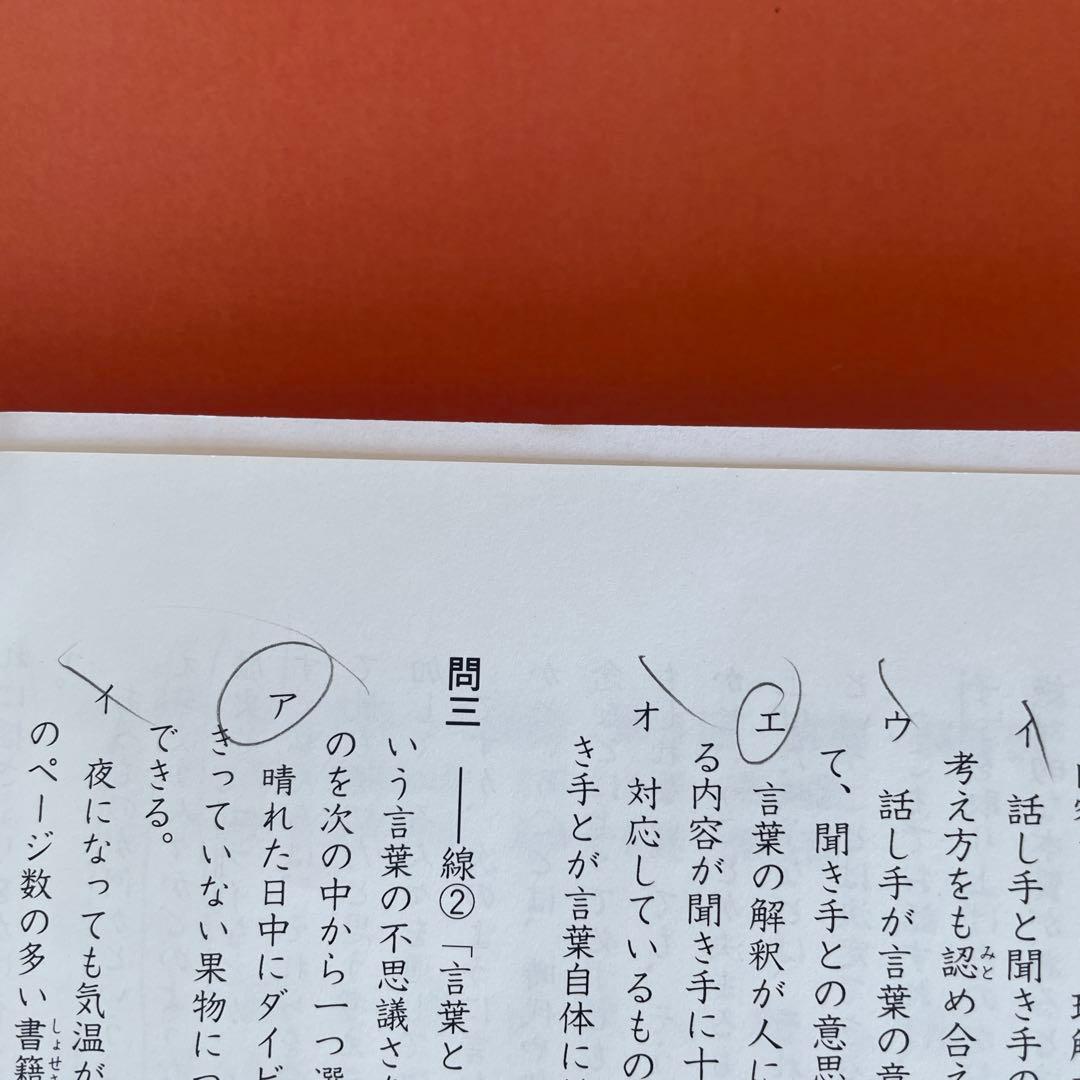 イ 話し手と聞き手の
考え方をも認め合え
みと
ウ 話し手が言葉の意
て、聞き手との意思
エ 言葉の解釈が人に
る内容が聞き手に十
オ 対応しているもの
き手とが言葉自体に
問三 ――線②「言葉と
いう言葉の不思議さ
のを次の中から一つ選
ア 晴れた日中にダイビ
きっていない果物につ
できる。
イ 夜になっても気温が
のページ数の多い書籍
しょせき